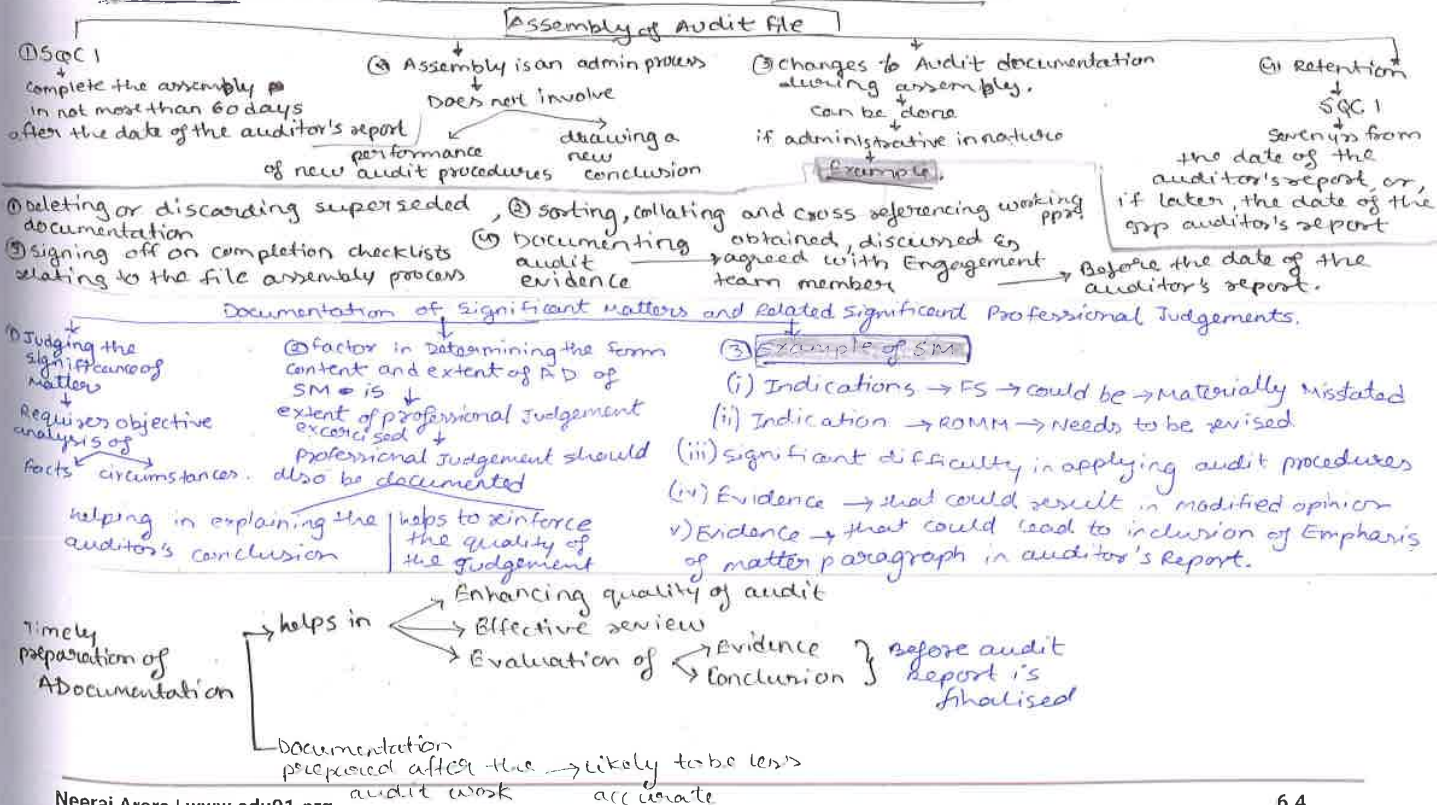 Assembly of Audit file
① SQC 1
complete the assembly
in not more than 60 days
after the date of the auditor's report
② Assembly is an admin process
Does not involve
performance
of new audit procedures
drawing a
new
conclusion
③ changes to Audit documentation
during assembly.
can be done
if administrative in nature
Example.
④ Retention
SQC 1
seven yrs from
the date of the
auditor's report, or,
if later, the date of the
grp auditor's report
① Deleting or discarding superseded
documentation
, ② sorting, collating and cross referencing working
pprs
③ signing off on completion checklists
relating to the file assembly process
④ Documenting
audit
evidence
obtained, discussed &
agreed with Engagement
team member
Before the date of the
auditor's report.
Documentation of Significant Matters and Related Significant Professional Judgements.
① Judging the
significance of
Matter
Requires objective
analysis of
facts circumstances.
② factor in Determining the form
content and extent of AD of
SM is
extent of professional Judgement
excercised
professional Judgement should
also be documented
helping in explaining the
auditor's conclusion
helps to reinforce
the quality of
the Judgement
③ Example of SM
(i) Indications → FS → could be → Materially Misstated
(ii) Indication → ROMM → Needs to be revised
(iii) significant difficulty in applying audit procedures
(iv) Evidence → that could result in modified opinion
v) Evidence → that could lead to inclusion of Emphasis
of matter paragraph in auditor's Report.
Timely
preparation of
ADocumentation
→ helps in
→ Enhancing quality of audit
→ Effective review
→ Evaluation of → Evidence
→ Conclusion
Before audit
Report is
finalised
Documentation
prepared after the → likely to be less
audit work accurate
6.4